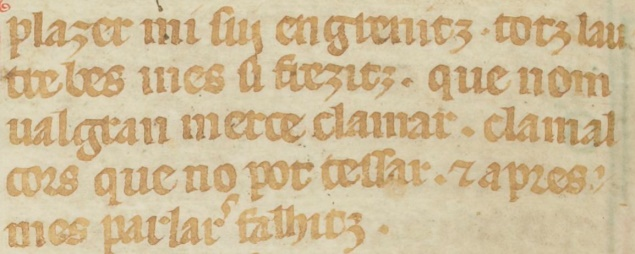 plazer mi suy engrenitz · totz lau
tre bes mes si frezitz · que nom
ual gran merce clamar · clamal
cors que no pot cessar · ⁊ apres
mos parlars falhitz ·